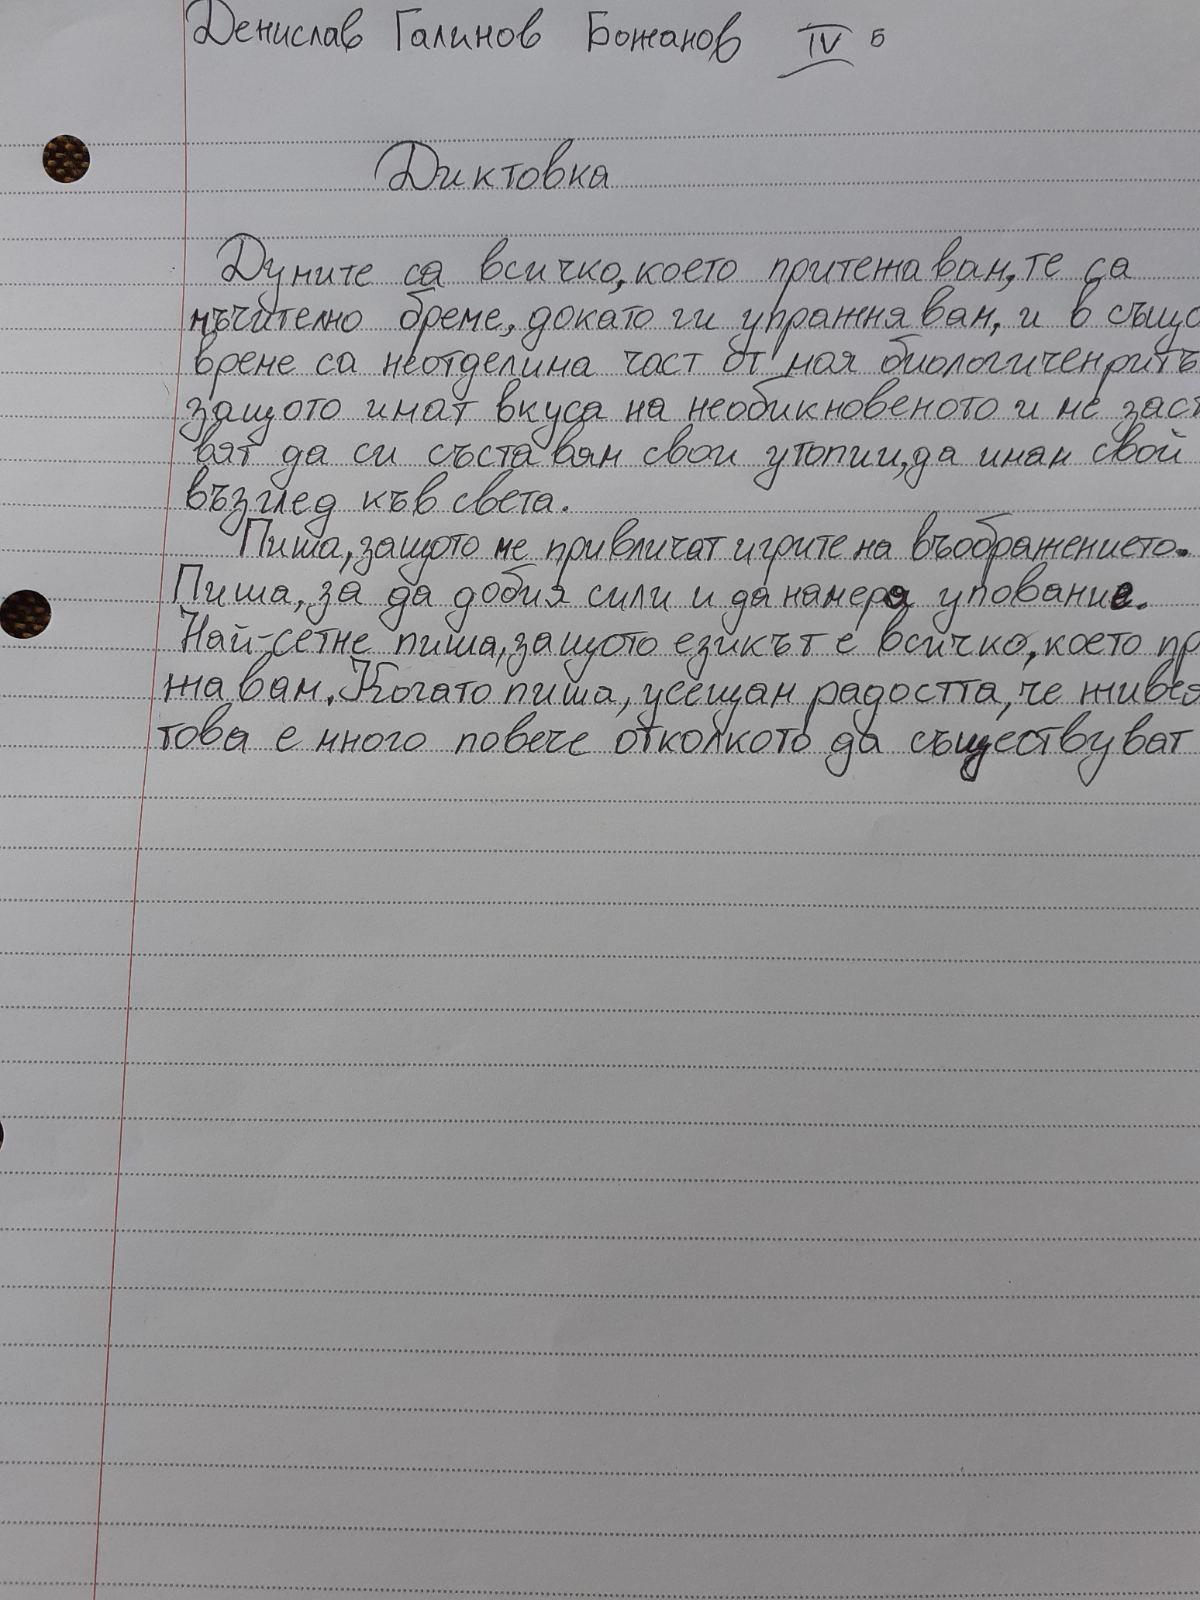 Денислав Галинов Божанов IV б
Диктовка
Думите са всичко, което притежавам, те са
мъчително бреме, докато ги упражнявам, и в също
време са неотделима част от моя биологиченритъ
защото имат вкуса на необикновеното и ме заст
вят да си съставям свои утопии, да имам свой
възглед към света.
Пиша, защото ме привличат игрите на въображението.
Пиша, за да добия сили и да намеря упование.
Най-сетне пиша, защото езикът е всичко, което пр
жавам. Когато пиша, усещам радостта, че живея
това е много повече отколкото да съществуват